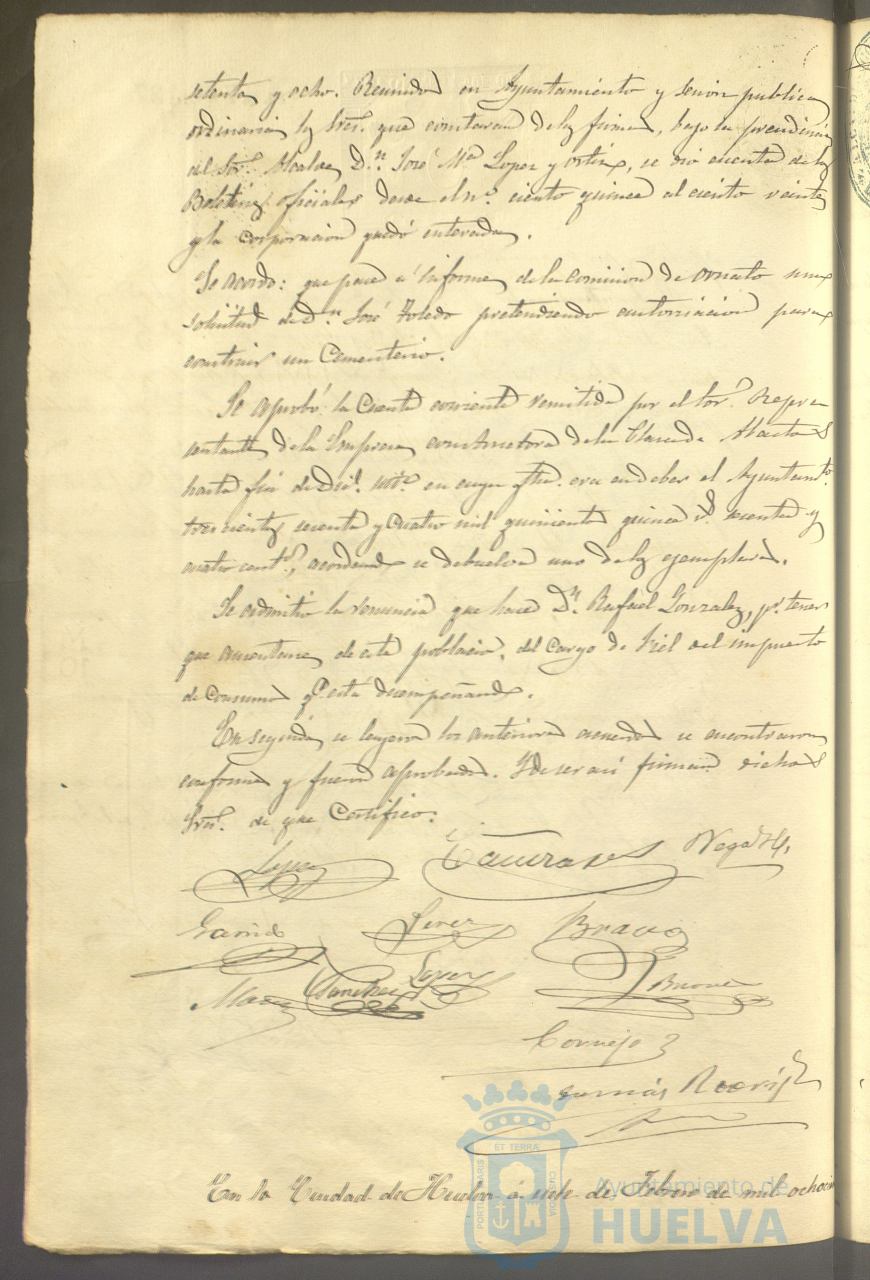 setenta y ocho. Reunidos en Ayuntamiento y sesion publica
ordinaria los Sres. que constaran de las firmas, bajo la presidencia
del Sor. Alcalde D.n José Ma Lopez y Ortiz, se dio cuenta de los
Boletines oficiales desde el no. ciento quince al ciento veinte
y la corporacion quedó enterada.
Se acordó: que pase á informe de la comision de ornato una
solicitud de D.n José Toledo pretendiendo autorizacion para
construir un Cementerio.
Se aprobó la Cuenta corriente remitida por el Sor. Repre
sentante de la Empresa constructora de la Plaza de Abastos
hasta fin de Dic. ulto. en cuya fha. era en deber el Ayuntamto.
trescientos sesenta y cuatro mil quinientos quince rs. sesenta y
cuatro cents., acordando se debuelva uno de los ejemplares.
Se admitió la renuncia que hace D.n Rafael Gonzalez, pr. tener
que ausentarse de esta poblacion, del cargo de Fiel del impuesto
de Consumos q.e está desempeñando.
En seguida se leyeron los anteriores acuerdos se encontraron
conformes y fueron aprobados. Y de ser asi firman dichos
Sres. de que Certifico.
Lopez
Garrido Perez Bravo
Sanchez Lopez
Cornejo
Tomás
ET TERRAE
PORTUS MARIS
CUSTODIA
En la Ciudad de Huelva á siete de Febrero de mil ochocien
Ayuntamiento de
HUELVA